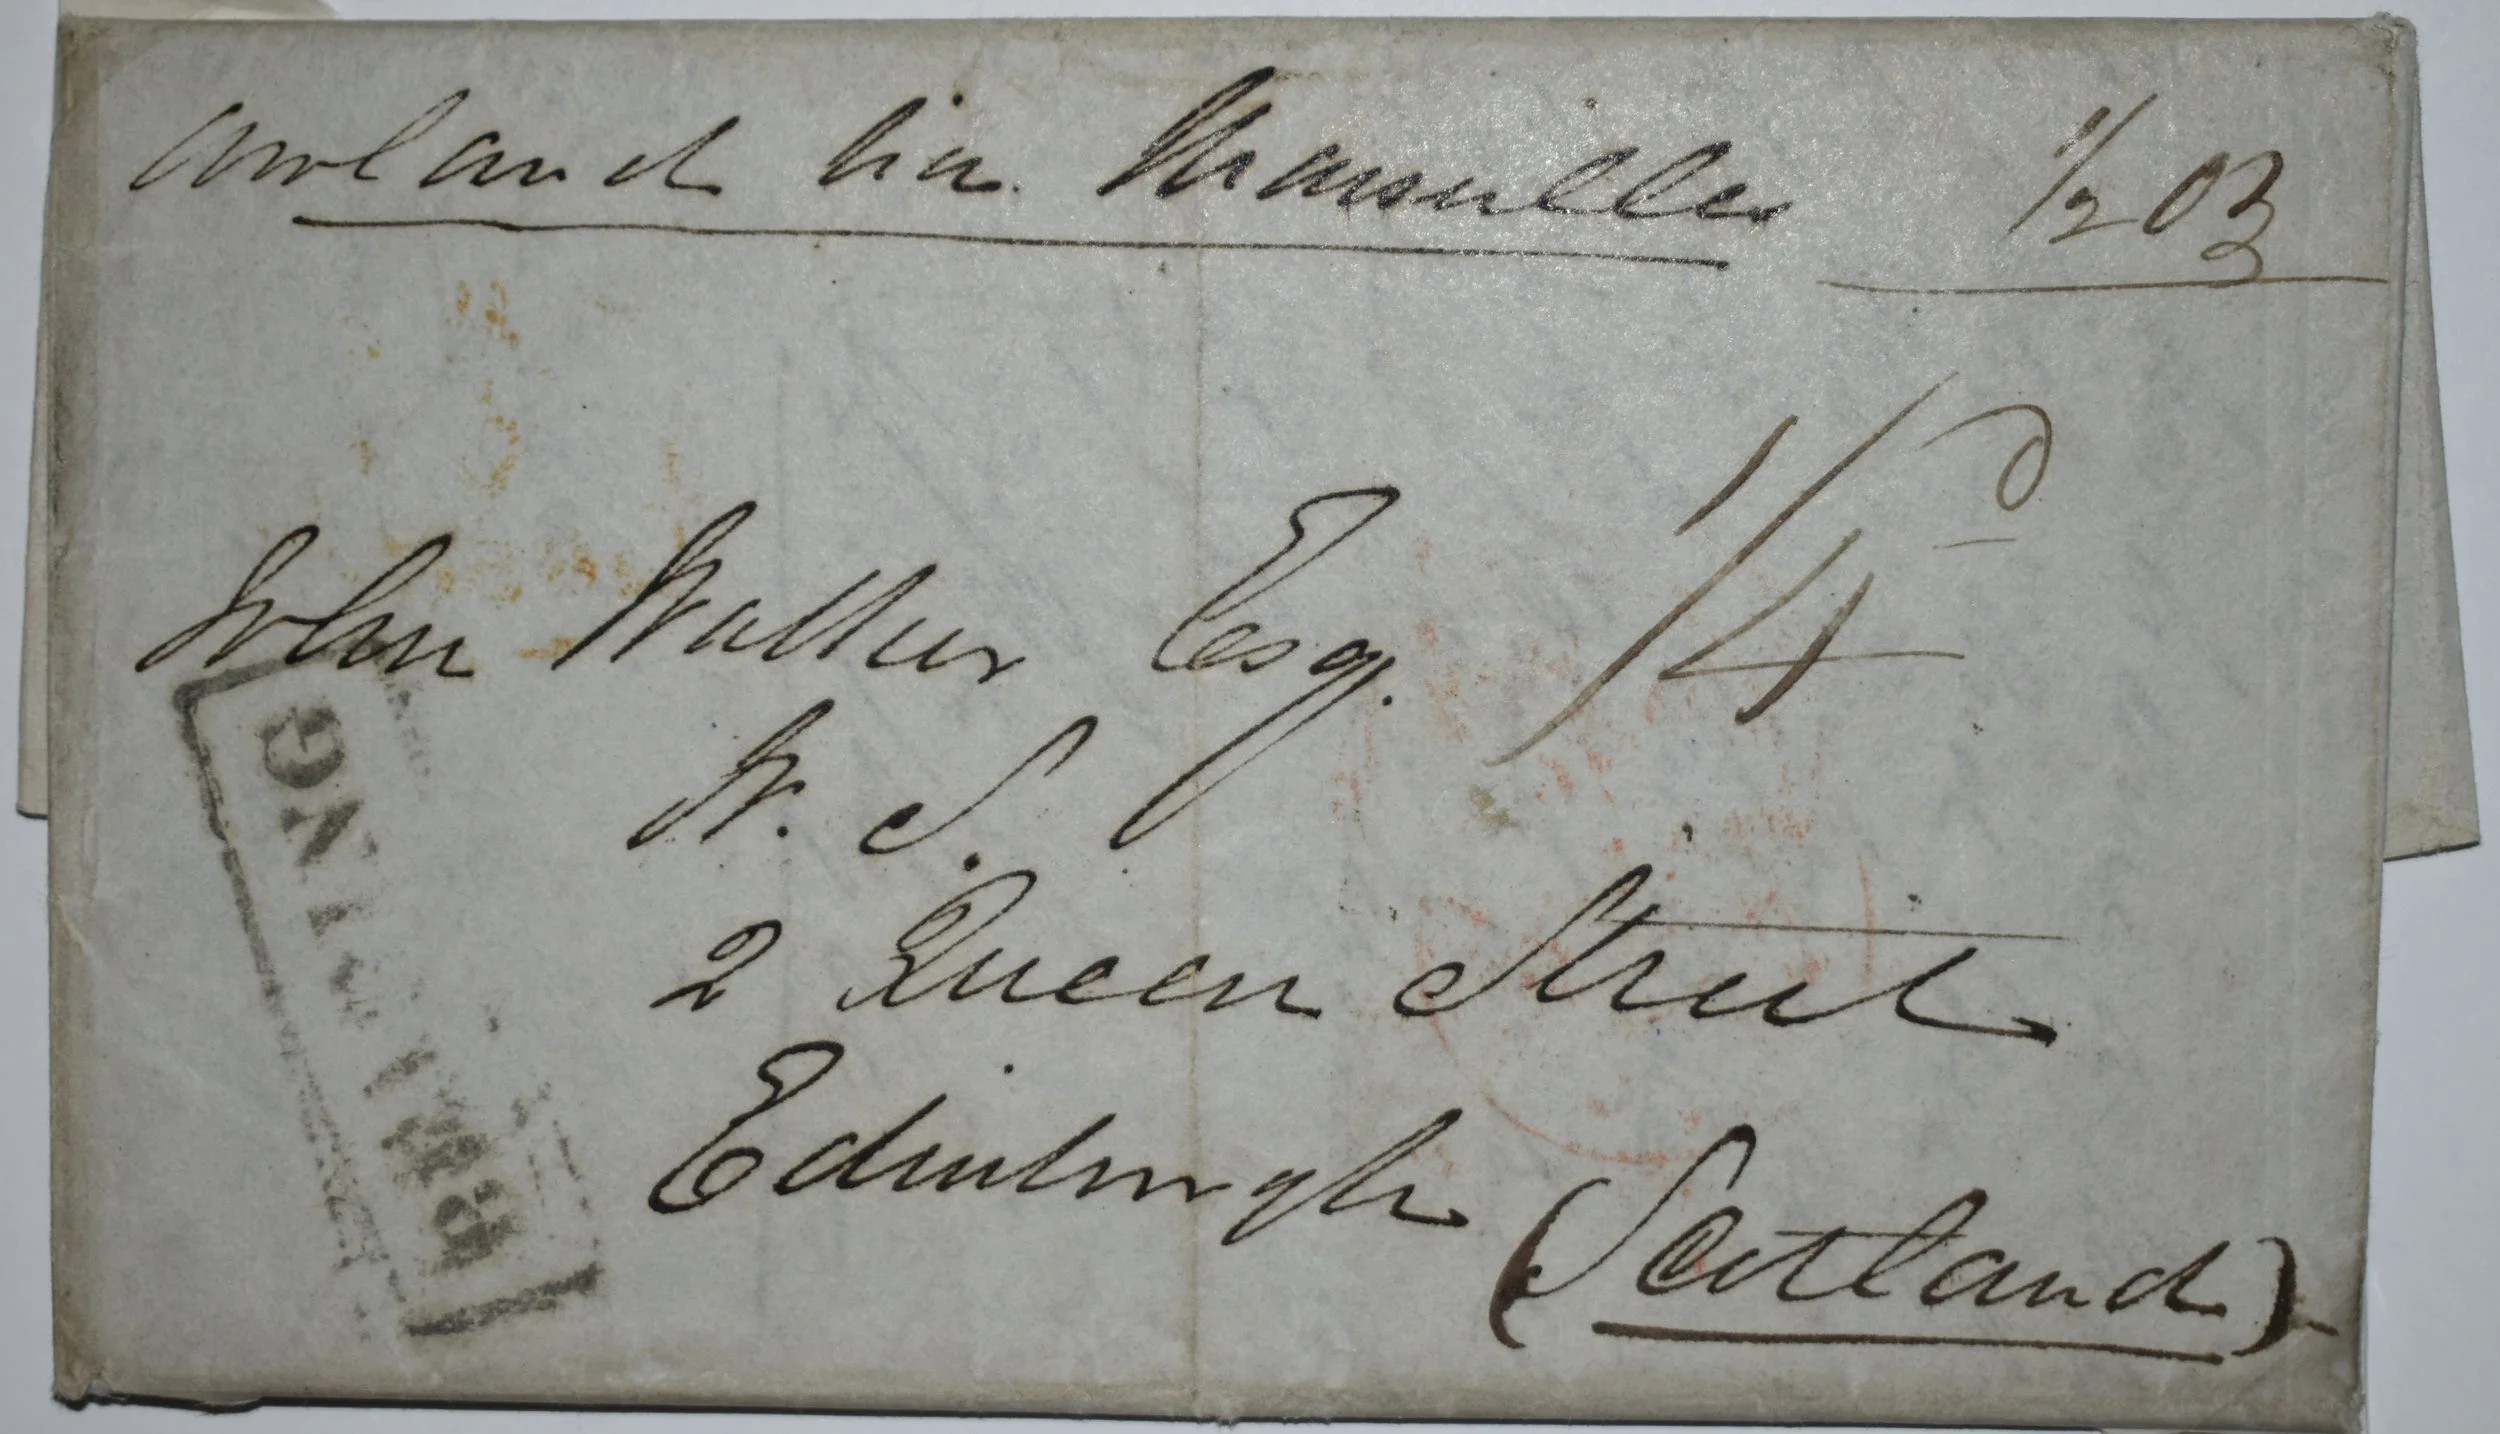 Overland via Marseilles 1/2 oz
1/4d
John Walker Esq.
W. S.
2 Queen Street
Edinburgh (Scotland)